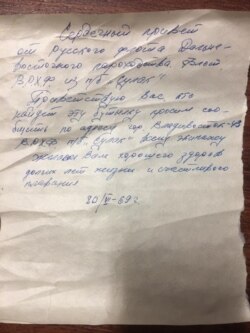 Сердечный привет
от Русского флота Дальне-
восточного пароходства. Флот
ВРХФ из п/б „Сулак"
Приветствую Вас, кто
найдет эту бутылку просим соо
бщить по адресу гор Владивосток-43
ВРХФ п/б „Сулак" всему экипажу
желаем Вам хорошего здоров
долгих лет жизни и счастливого
плавания
20/VI-69 г.